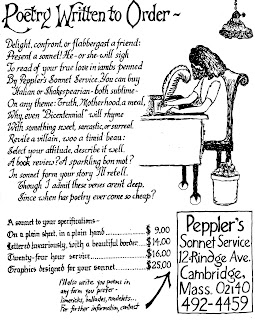 Poetry Written to Order~
Delight, confront, or flabbergast a friend:
Present a sonnet! He-or she-will sigh
To read of your true love in iambs penned
By Peppler's Sonnet Service. You can buy
Italian or Shakespearian - both sublime -
On any theme: Truth, Motherhood, a meal,
Why, even "Bicentennial" will rhyme
With something sweet, sarcastic, or surreal.
Revile a villain, woo a timid beau:
Select your attitude, describe it well.
A book review? A sparkling bon mot?
In sonnet form your story I'll retell.
Though I admit these verses aren't deep,
Since when has poetry ever come so cheap?
A sonnet to your specifications-
On a plain sheet, in a plain hand $ 9.00
Lettered luxuriously, with a beautiful border $14.00
Twenty-four hour service $16.00
Graphics designed for your sonnet $25.00
I'll also write you poems in
any form you prefer -
limericks, ballades, rondelets...
For further information, contact
Peppler's
Sonnet Service
12 Rindge Ave.
Cambridge,
Mass. 02140
492-4459